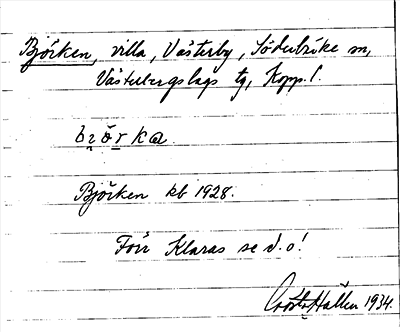 Björken, villa, Västerby, Söderbärke sn,
Västerbergslags tg, Kopp. l.
Björken kb 1928.
Förr Klaras se d. o!
Hallén 1934.